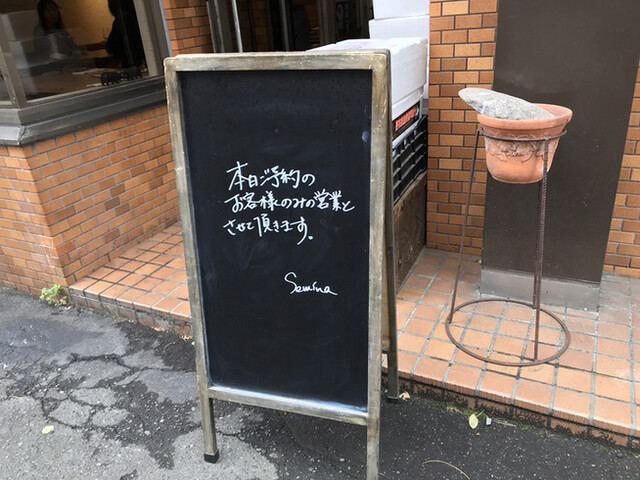 本日ご予約の
お客様のみの営業と
させて頂きます。
Semina